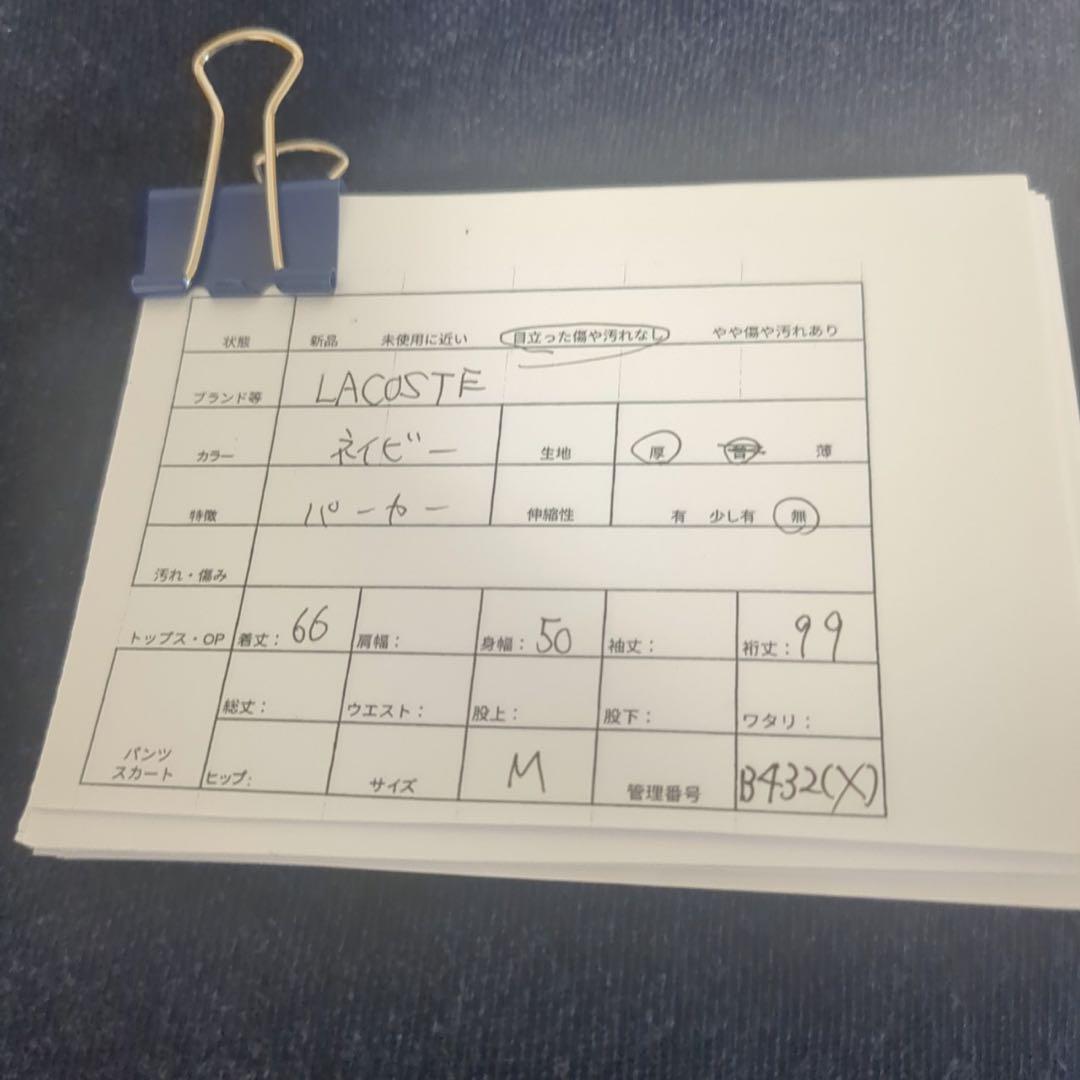 状態 新品 未使用に近い 目立った傷や汚れなし やや傷や汚れあり
ブランド等 LACOSTE
カラー ネイビー 生地 厚 普 薄
特徴 パーカー 伸縮性 有 少し有 無
汚れ・傷み
トップス・OP 着丈: 66 肩幅: 身幅: 50 袖丈: 裄丈: 99
総丈: ウエスト: 股上: 股下: ワタリ:
パンツ
スカート ヒップ: サイズ M 管理番号 B432(X)